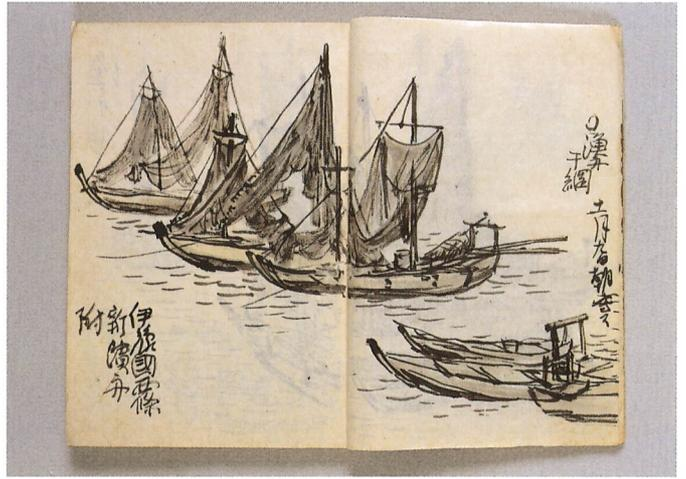 漁舟
干網
十一月 朝
伊豫國西條
新濱舟
附